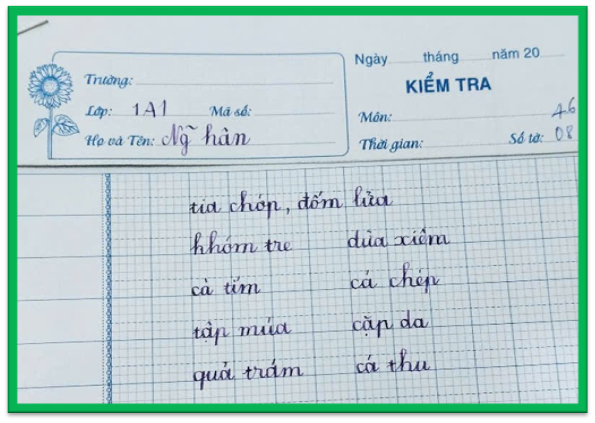 Ngày tháng năm 20
Trường:
KIỂM TRA
Lớp: 1A1 Mã số:
Môn: A6
Họ và Tên: Ngỹ hân
Thời gian: Số tờ: 08
tia chớp, đốm lửa
khóm tre dừa xiêm
cà tím cá chép
tập múa cặp da
quả trám cá thu